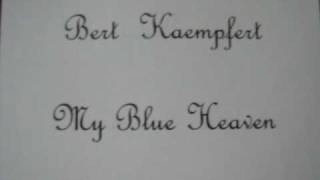 Bert Kaempfert
My Blue Heaven